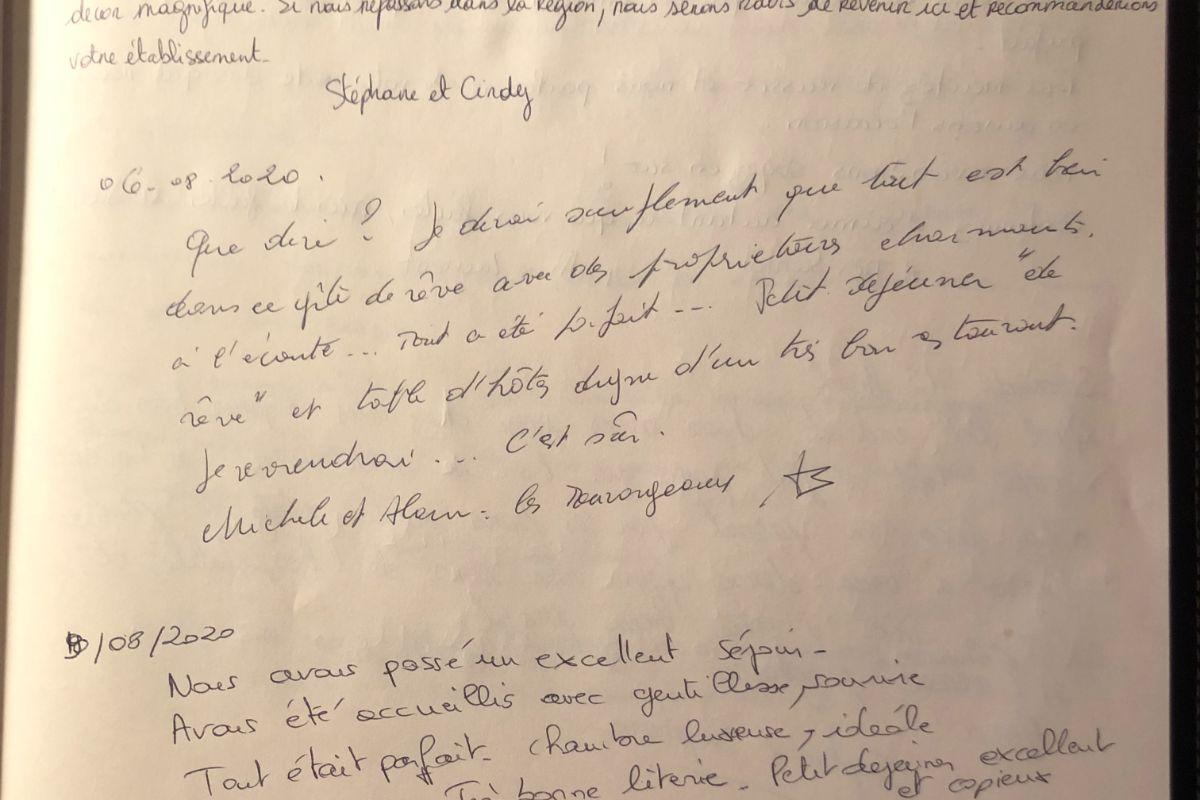 décor magnifique. Si nous repassons dans la région, nous serons ravis de revenir ici et recommanderons
votre établissement.
Stéphane et Cindy
06.08.2020.
Que dire ? Je dirai simplement que tout est bien
dans ce gîte de rêve avec des propriétaires charmants.
à l'écoute... Tout a été parfait... Petit déjeuner "de
rêve" et table d'hôtes digne d'un très bon restaurant.
Je reviendrai... C'est sûr.
Michele et Alain. les Tourangeaux
/08/2020
Nous avons passé un excellent séjour -
Avons été accueillis avec gentillesse, sourire
Tout était parfait. chambre luxueuse, idéale
Très bonne literie. Petit déjeuner excellent
et copieux